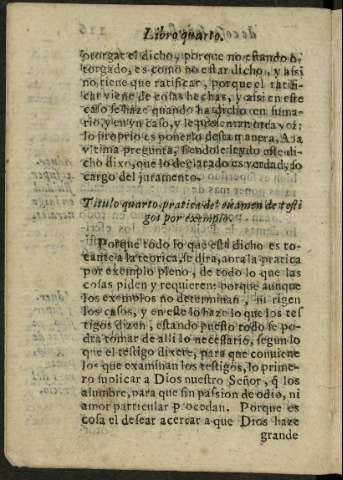 Libro quarto.
otorgar el dicho, porque no estando o
torgado, es como no estar dicho, y assi
no tiene que ratificar, porque el ratifi
car viene de cosas hechas, y assi en este
caso se haze quando ha dicho en suma-
rio, y en tal caso, y le presentan otra vez:
lo proprio es ponerlo desta manera. A la
vltima pregunta, siendole leydo este di-
cho dixo, que lo declarado es verdad, so
cargo del juramento.
Titulo quarto, pratica del examen de testi
gos por exemplo.
Porque todo lo que está dicho es to-
cante a la teorica, se dira, aora la pratica
por exemplo pleno, de todo lo que las
cosas piden y requieren: porque aunque
los exemplos no determinan, ni rigen
los casos, y en este lo haze lo que los tes
tigos dizen, estando puesto todo se po-
dra tomar de alli lo necessario, segun lo
que el testigo dixere, para que conuiene
los que examinan los testigos, lo prime-
ro suplicar a Dios nuestro Señor, q̃ los
alumbre, para que sin passion de odio, ni
amor particular procedan. Porque es
cosa el desear acertar a que Dios haze
grande